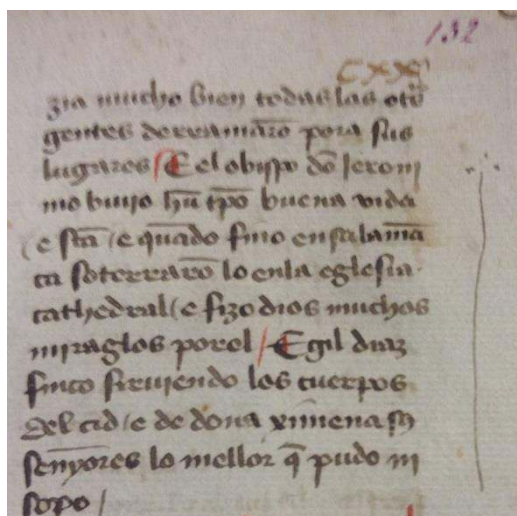 132
CXXX
zia mucho bien todas las otr̃
gentes derramarō pora sus
lugares E el obispo dō Jeroni
mo biuio hū tp̄o buena vida
e sc̄a e quādo fino en salamā
ca soterrarō lo enla eglesia
cathedral e fizo dios muchos
miraglos porel / E gil diaz
finco siruiendo los cuerpos
del cid e de dona ximena sus
senyores lo mellor q̄ pudo ni
sopo /